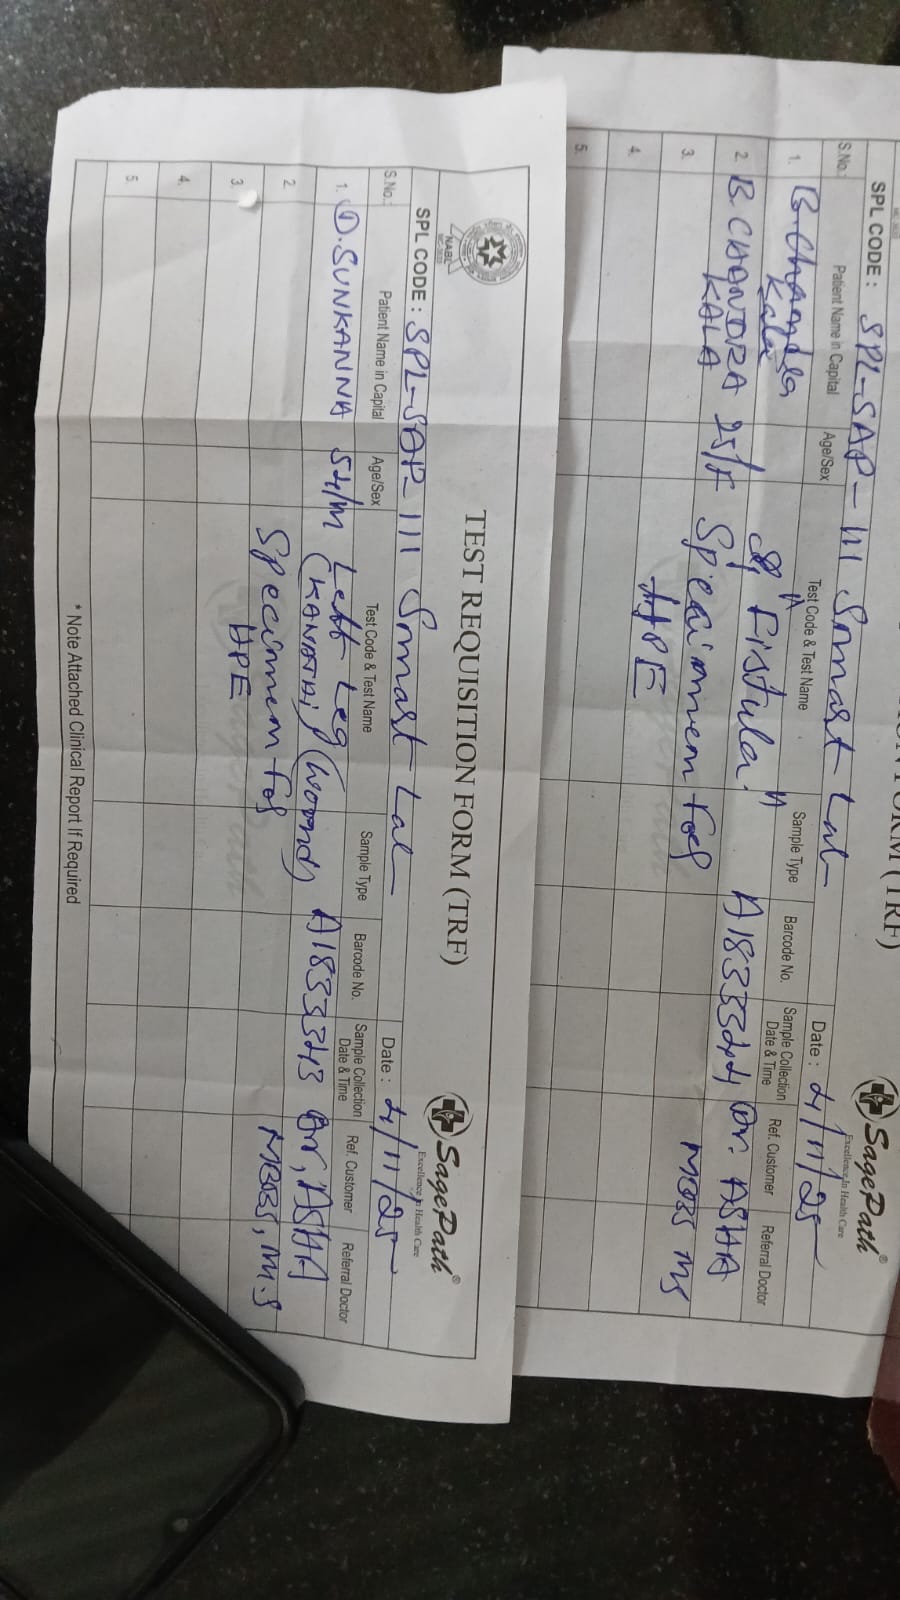 SPL CODE : SPL-SAP-111 Smart Lab
Date : 4/11/25
SagePath®
Excellence In Health Care
S.No. Patient Name in Capital Age/Sex Test Code & Test Name Sample Type Barcode No. Sample Collection Date & Time Ref. Customer Referral Doctor
1. B.Chandra
Kala
"Fistula"
2. B.CHANDRA 25/F Specimen for A1833544 Dr. ASHA
KALA HPE MBBS MS
3.
4.
5.
NABL
TEST REQUISITION FORM (TRF)
SagePath®
Excellence In Health Care
SPL CODE : SPL-SAP-111 Smart Lab
Date : 4/11/25
S.No. Patient Name in Capital Age/Sex Test Code & Test Name Sample Type Barcode No. Sample Collection Date & Time Ref. Customer Referral Doctor
1. D.SUNKANNA 54/M Left Leg A1833543 Dr, ASHA
(wound) MBBS, M.S
2. Specimen for
3. HPE
4.
5.
* Note Attached Clinical Report If Required